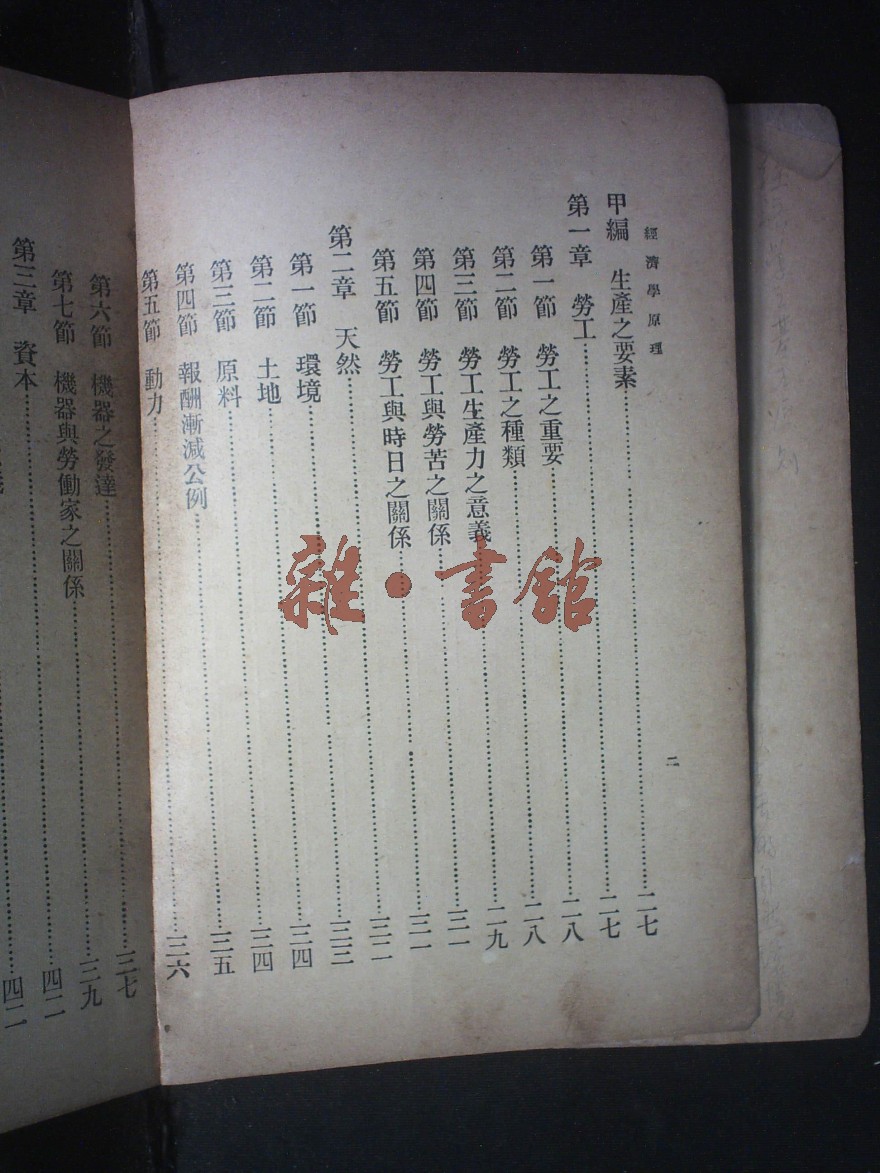 經濟學原理
二
甲編 生產之要素……二七
第一章 勞工……二七
第一節 勞工之重要……二八
第二節 勞工之種類……二八
第三節 勞工生產力之意義……二九
第四節 勞工與勞苦之關係……三一
第五節 勞工與時日之關係……三一
第二章 天然……三二
第一節 環境……三三
第二節 土地……三四
第三節 原料……三四
第四節 報酬漸減公例……三五
第五節 動力……三六
第六節 機器之發達……三七
第七節 機器與勞働家之關係……三九
第三章 資本……四二
四二
雜·書館